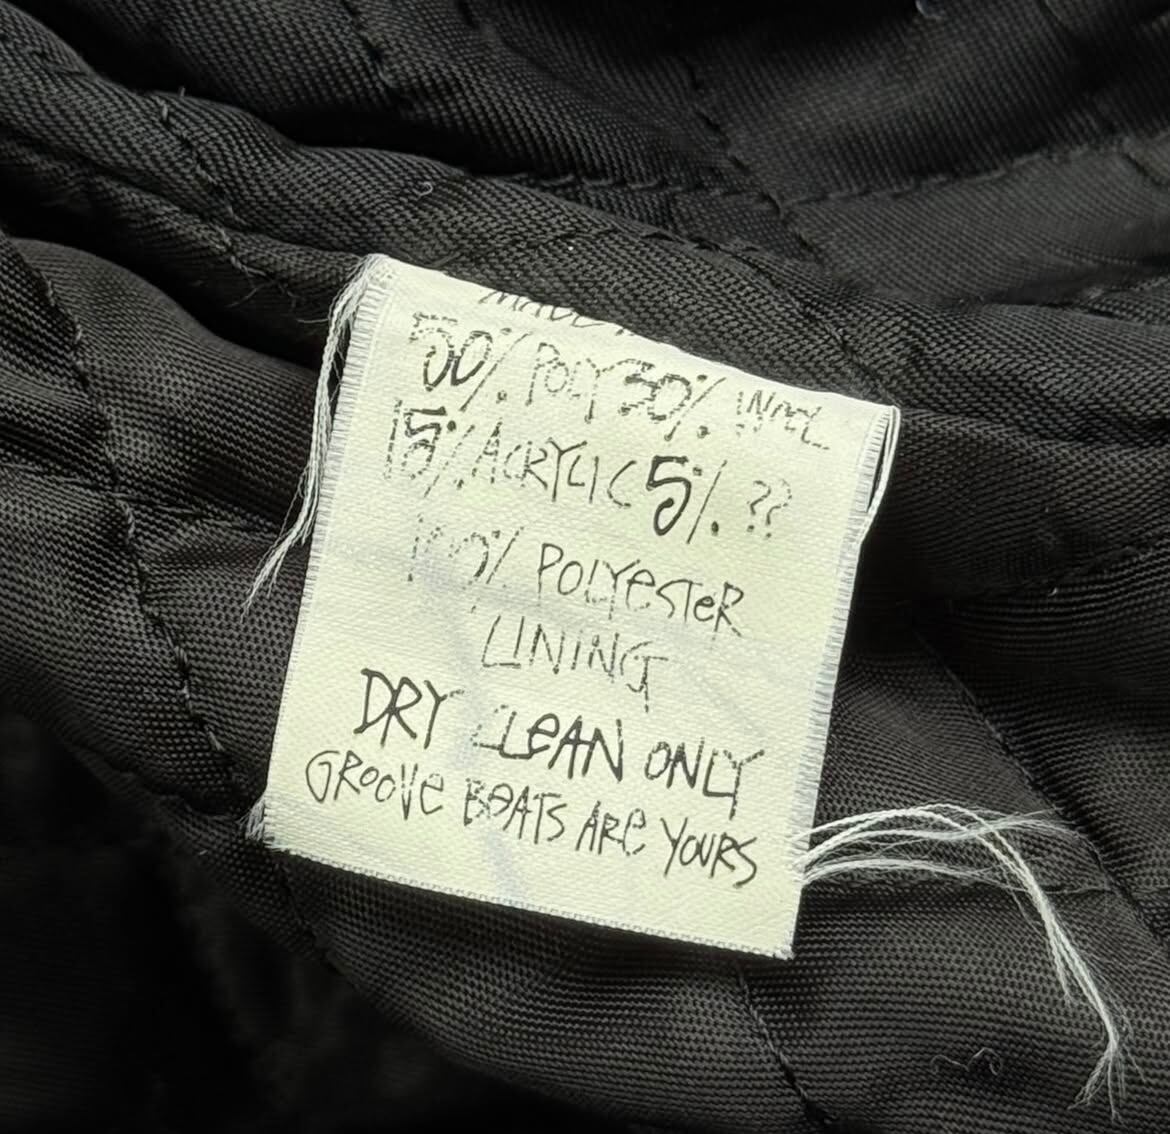 MADE
50% POLY 30% WOOL
15% ACRYLIC 5% ??
100% POLYESTER
LINING
DRY CLEAN ONLY
GROOVE BEATS ARE YOURS